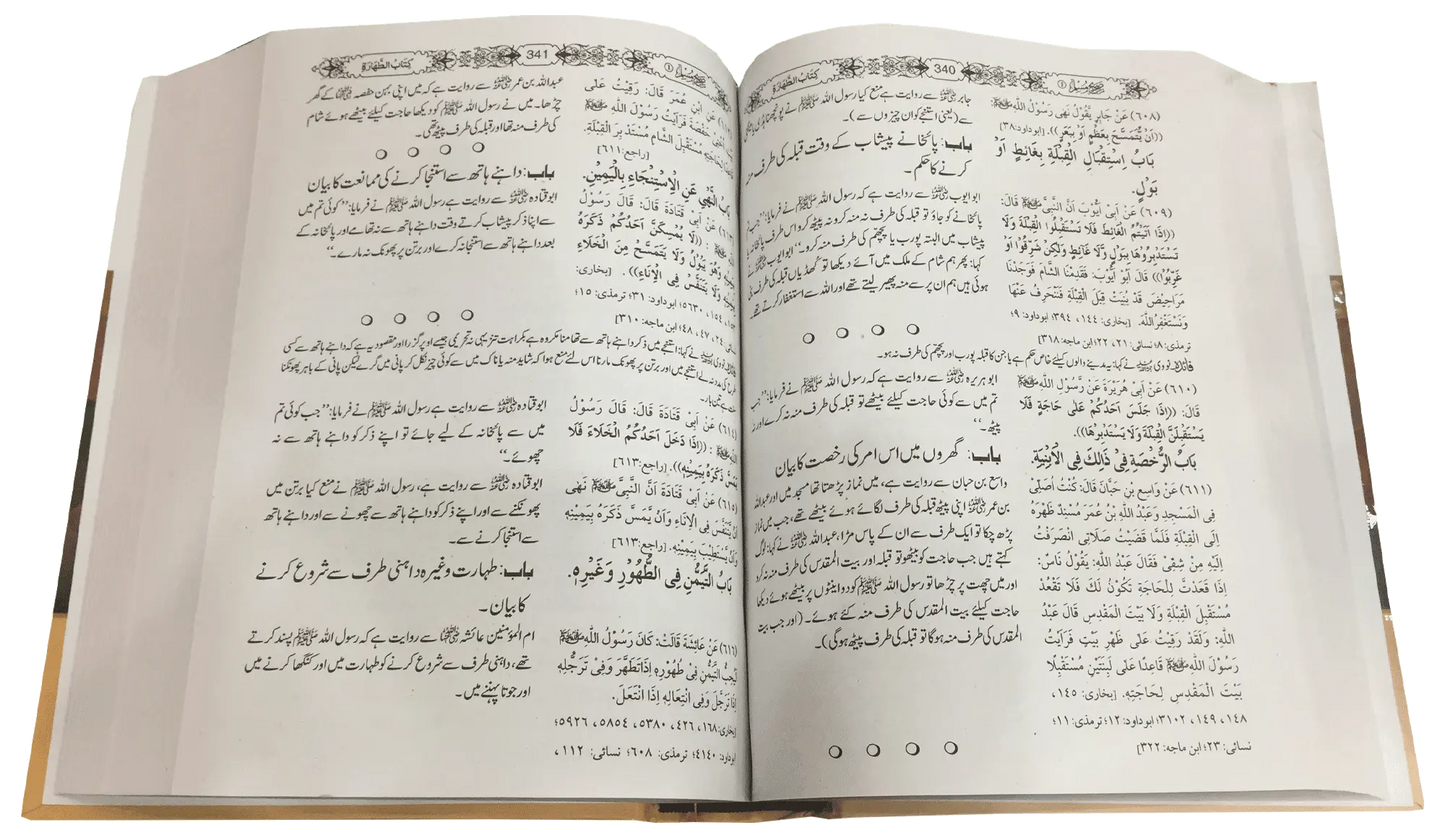 صحیح مسلم ① 340 کتاب الطهارة
(٦٠٨) عَنْ جَابِرٍ يَقُوْلُ نَهَى رَسُوْلُ اللّٰهِ ﷺ
((اَنْ يُّتَمَسَّحَ بِعَظْمٍ اَوْ بِبَعَرٍ)). [ابوداود:٣٨]
بَابُ اِسْتِقْبَالِ الْقِبْلَةِ بِغَائِطٍ اَوْ
بَوْلٍ.
(٦٠٩) عَنْ اَبِي اَيُّوْبَ اَنَّ النَّبِيَّ ﷺ قَالَ:
((اِذَا اَتَيْتُمُ الْغَائِطَ فَلَا تَسْتَقْبِلُوا الْقِبْلَةَ وَلَا
تَسْتَدْبِرُوْهَا بِبَوْلٍ وَّلَا غَائِطٍ وَلٰكِنْ شَرِّقُوْا اَوْ
غَرِّبُوْا)) قَالَ اَبُوْ اَيُّوْبَ: فَقَدِمْنَا الشَّامَ فَوَجَدْنَا
مَرَاحِيْضَ قَدْ بُنِيَتْ قِبَلَ الْقِبْلَةِ فَنَنْحَرِفُ عَنْهَا
وَنَسْتَغْفِرُ اللّٰهَ. [بخاری: ١٤٤، ٣٩٤؛ ابوداود: ٩؛
ترمذی: ٨؛ نسائی: ٢١، ٢٢؛ ابن ماجه: ٣١٨]
جابر رضی اللہ عنہ سے روایت ہے منع کیا رسول اللہ ﷺ نے پونچھنا ہڈی یا مینگنی
سے (یعنی استنجے کو ان چیزوں سے)۔
باب: پائخانے پیشاب کے وقت قبلہ کی طرف منہ
کرنے کا حکم۔
ابو ایوب رضی اللہ عنہ سے روایت ہے کہ رسول اللہ ﷺ نے فرمایا: ’’جب تم
پائخانے کو جاؤ تو قبلہ کی طرف نہ منہ کرو نہ پیٹھ کرو اس طرف پائخانہ یا
پیشاب میں البتہ پورب یا پچھم کی طرف منہ کرو۔‘‘ ابو ایوب رضی اللہ عنہ نے
کہا: پھر ہم شام کے ملک میں آئے دیکھا تو کھڈیاں قبلہ کی طرف بنی
ہوئی ہیں ہم ان پر سے منہ پھیر لیتے تھے اور اللہ سے استغفار کرتے تھے۔
فائدہ: نووی رحمہ اللہ نے کہا: یہ مدینے والوں کیلئے خاص حکم ہے یا جن کا قبلہ پورب اور پچھم کی طرف نہ ہو۔
(٦١٠) عَنْ اَبِيْ هُرَيْرَةَ عَنْ رَّسُوْلِ اللّٰهِ ﷺ
قَالَ: ((اِذَا جَلَسَ اَحَدُكُمْ عَلٰى حَاجَةٍ فَلَا
يَسْتَقْبِلَنَّ الْقِبْلَةَ وَلَا يَسْتَدْبِرْهَا)).
بَابُ الرُّخْصَةِ فِيْ ذَالِكَ فِي الْاَبْنِيَةِ.
(٦١١) عَنْ وَاسِعِ بْنِ حَبَّانَ قَالَ: كُنْتُ اُصَلِّيْ
فِي الْمَسْجِدِ وَعَبْدُ اللّٰهِ بْنُ عُمَرَ مُسْنِدٌ ظَهْرَهٗ
اِلَى الْقِبْلَةِ فَلَمَّا قَضَيْتُ صَلَاتِيْ انْصَرَفْتُ
اِلَيْهِ مِنْ شِقِّيْ فَقَالَ عَبْدُ اللّٰهِ: يَقُوْلُ نَاسٌ:
اِذَا قَعَدْتَّ لِلْحَاجَةِ تَكُوْنُ لَكَ فَلَا تَقْعُدْ
مُسْتَقْبِلَ الْقِبْلَةِ وَلَا بَيْتَ الْمَقْدِسِ قَالَ عَبْدُ
اللّٰهِ: وَلَقَدْ رَقِيْتُ عَلٰى ظَهْرِ بَيْتٍ فَرَاَيْتُ
رَسُوْلَ اللّٰهِ ﷺ قَاعِدًا عَلٰى لَبِنَتَيْنِ مُسْتَقْبِلًا
بَيْتَ الْمَقْدِسِ لِحَاجَتِهٖ. [بخاری: ١٤٥،
١٤٨، ١٤٩، ٣١٠٢؛ ابوداود: ١٢؛ ترمذی: ١١؛
نسائی: ٢٣؛ ابن ماجه: ٣٢٢]
ابو ہریرہ رضی اللہ عنہ سے روایت ہے کہ رسول اللہ ﷺ نے فرمایا: ’’جب
تم میں سے کوئی حاجت کیلئے بیٹھے تو قبلہ کی طرف منہ نہ کرے اور نہ
پیٹھ۔‘‘
باب: گھروں میں اس امر کی رخصت کا بیان
واسع بن حبان سے روایت ہے، میں نماز پڑھتا تھا مسجد میں اور عبداللہ
بن عمر رضی اللہ عنہ اپنی پیٹھ قبلہ کی طرف لگائے ہوئے بیٹھے تھے، جب میں نماز
پڑھ چکا تو ایک طرف سے ان کے پاس مڑا، عبداللہ رضی اللہ عنہ نے کہا: لوگ
کہتے ہیں جب حاجت کو بیٹھو تو قبلہ اور بیت المقدس کی طرف منہ نہ کرو
اور میں چھت پر چڑھا تو رسول اللہ ﷺ کو دو اینٹوں پر بیٹھے ہوئے دیکھا
حاجت کیلئے بیت المقدس کی طرف منہ کئے ہوئے۔ (اور جب بیت
المقدس کی طرف منہ ہوگا تو قبلہ کی طرف پیٹھ ہوگی)۔
صحیح مسلم ① 341 کتاب الطهارة
عَنِ ابْنِ عُمَرَ قَالَ: رَقِيْتُ عَلٰى
حَفْصَةَ فَرَاَيْتُ رَسُوْلَ اللّٰهِ ﷺ
لِحَاجَتِهٖ مُسْتَقْبِلَ الشَّامِ مُسْتَدْبِرَ الْقِبْلَةِ.
[راجع:٦١١]
بَابُ النَّهْيِ عَنِ الْاِسْتِنْجَاءِ بِالْيَمِيْنِ.
عَنْ اَبِيْ قَتَادَةَ قَالَ: قَالَ رَسُوْلُ
: ((لَا يُمْسِكَنَّ اَحَدُكُمْ ذَكَرَهٗ
وَهُوَ يَبُوْلُ وَلَا يَتَمَسَّحْ مِنَ الْخَلَاءِ
وَلَا يَتَنَفَّسْ فِي الْاِنَاءِ)). [بخاری:
١٥٤، ٥٦٣٠؛ ابوداود: ٣١؛ ترمذی: ١٥؛
٢٤، ٤٧، ٤٨؛ ابن ماجه: ٣١٠]
عبداللہ بن عمر رضی اللہ عنہ سے روایت ہے کہ میں اپنی بہن حفصہ رضی اللہ عنہا کے گھر
چڑھا۔ میں نے رسول اللہ ﷺ کو دیکھا حاجت کیلئے بیٹھے ہوئے شام
کی طرف منہ تھا اور قبلہ کی طرف پیٹھ تھی۔
باب: داہنے ہاتھ سے استنجا کرنے کی ممانعت کا بیان
ابوقتادہ رضی اللہ عنہ سے روایت ہے کہ رسول اللہ ﷺ نے فرمایا: ’’کوئی تم میں
سے اپنا ذکر پیشاب کرتے وقت داہنے ہاتھ سے نہ تھامے اور پائخانہ کے
بعد داہنے ہاتھ سے استنجا نہ کرے اور برتن پر پھونک نہ مارے۔‘‘
فائدہ: نووی رحمہ اللہ نے کہا: استنجے میں ذکر داہنے ہاتھ سے تھامنا مکروہ ہے بکراہت تنزیہی نہ تحریمی جیسے اوپر گزرا اور مقصود یہ ہے کہ داہنے ہاتھ سے کسی
طرح کی مدد نہ لے استنجے میں اور برتن پر پھونک مارنا اس لئے منع ہوا کہ شاید منہ یا ناک میں سے کوئی چیز نکل کر پانی میں گرے لیکن پانی کے باہر پھونکنا
سنت ہے تین بار۔
(٦١٤) عَنْ اَبِيْ قَتَادَةَ قَالَ: قَالَ رَسُوْلُ
: ((اِذَا دَخَلَ اَحَدُكُمُ الْخَلَاءَ فَلَا
يَمَسَّ ذَكَرَهٗ بِيَمِيْنِهٖ)). [راجع:٦١٣]
(٦١٥) عَنْ اَبِيْ قَتَادَةَ اَنَّ النَّبِيَّ ﷺ نَهٰى
اَنْ يَّتَنَفَّسَ فِي الْاِنَاءِ وَاَنْ يَّمَسَّ ذَكَرَهٗ بِيَمِيْنِهٖ
وَاَنْ يَّسْتَطِيْبَ بِيَمِيْنِهٖ. [راجع:٦١٣]
بَابُ التَّيَمُّنِ فِي الطُّهُوْرِ وَغَيْرِهٖ.
(٦١٦) عَنْ عَائِشَةَ قَالَتْ: كَانَ رَسُوْلُ اللّٰهِ ﷺ
لَيُحِبُّ التَّيَمُّنَ فِيْ طُهُوْرِهٖ اِذَا تَطَهَّرَ وَفِيْ تَرَجُّلِهٖ
اِذَا تَرَجَّلَ وَفِي انْتِعَالِهٖ اِذَا انْتَعَلَ.
[بخاری: ١٦٨، ٤٢٦، ٥٣٨٠، ٥٨٥٤، ٥٩٢٦؛
ابوداود: ٤١٤٠؛ ترمذی: ٦٠٨؛ نسائی: ١١٢،
ابوقتادہ رضی اللہ عنہ سے روایت ہے رسول اللہ ﷺ نے فرمایا: ’’جب کوئی تم
میں سے پائخانہ کے لیے جائے تو اپنے ذکر کو داہنے ہاتھ سے نہ
چھوئے۔‘‘
ابوقتادہ رضی اللہ عنہ سے روایت ہے، رسول اللہ ﷺ نے منع کیا برتن میں
پھونکنے سے اور اپنے ذکر کو داہنے ہاتھ سے چھونے سے اور داہنے ہاتھ
سے استنجا کرنے سے۔
باب: طہارت وغیرہ داہنی طرف سے شروع کرنے
کا بیان۔
ام المؤمنین عائشہ رضی اللہ عنہا سے روایت ہے کہ رسول اللہ ﷺ پسند کرتے
تھے، داہنی طرف سے شروع کرنے کو طہارت میں اور کنگھا کرنے میں
اور جوتا پہننے میں۔